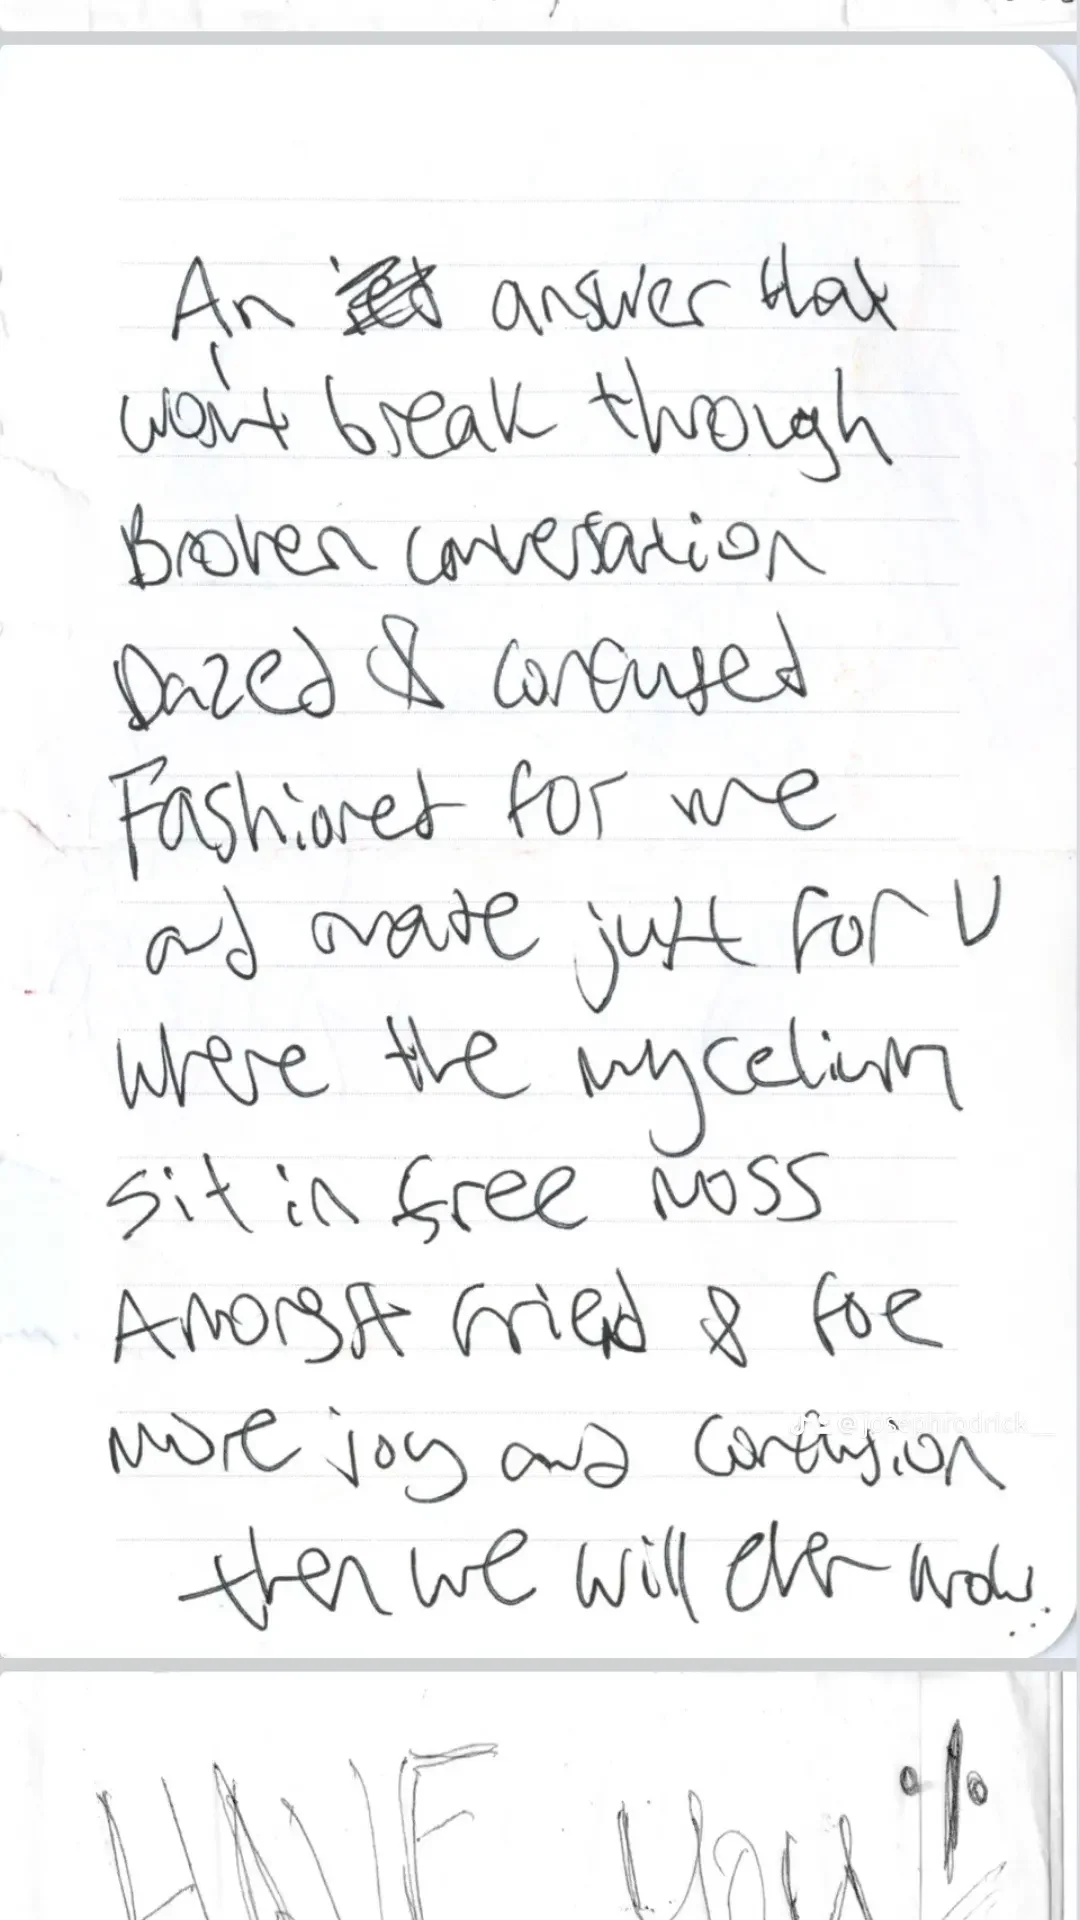 An answer that
won't break through
Broken conversation
Dazed & confused
Fashioned for me
and made just for U
where the mycelium
sit in free moss
Amongst friend & foe
more joy and confusion
then we will ever know...
@josephrodrick__
HAVE you